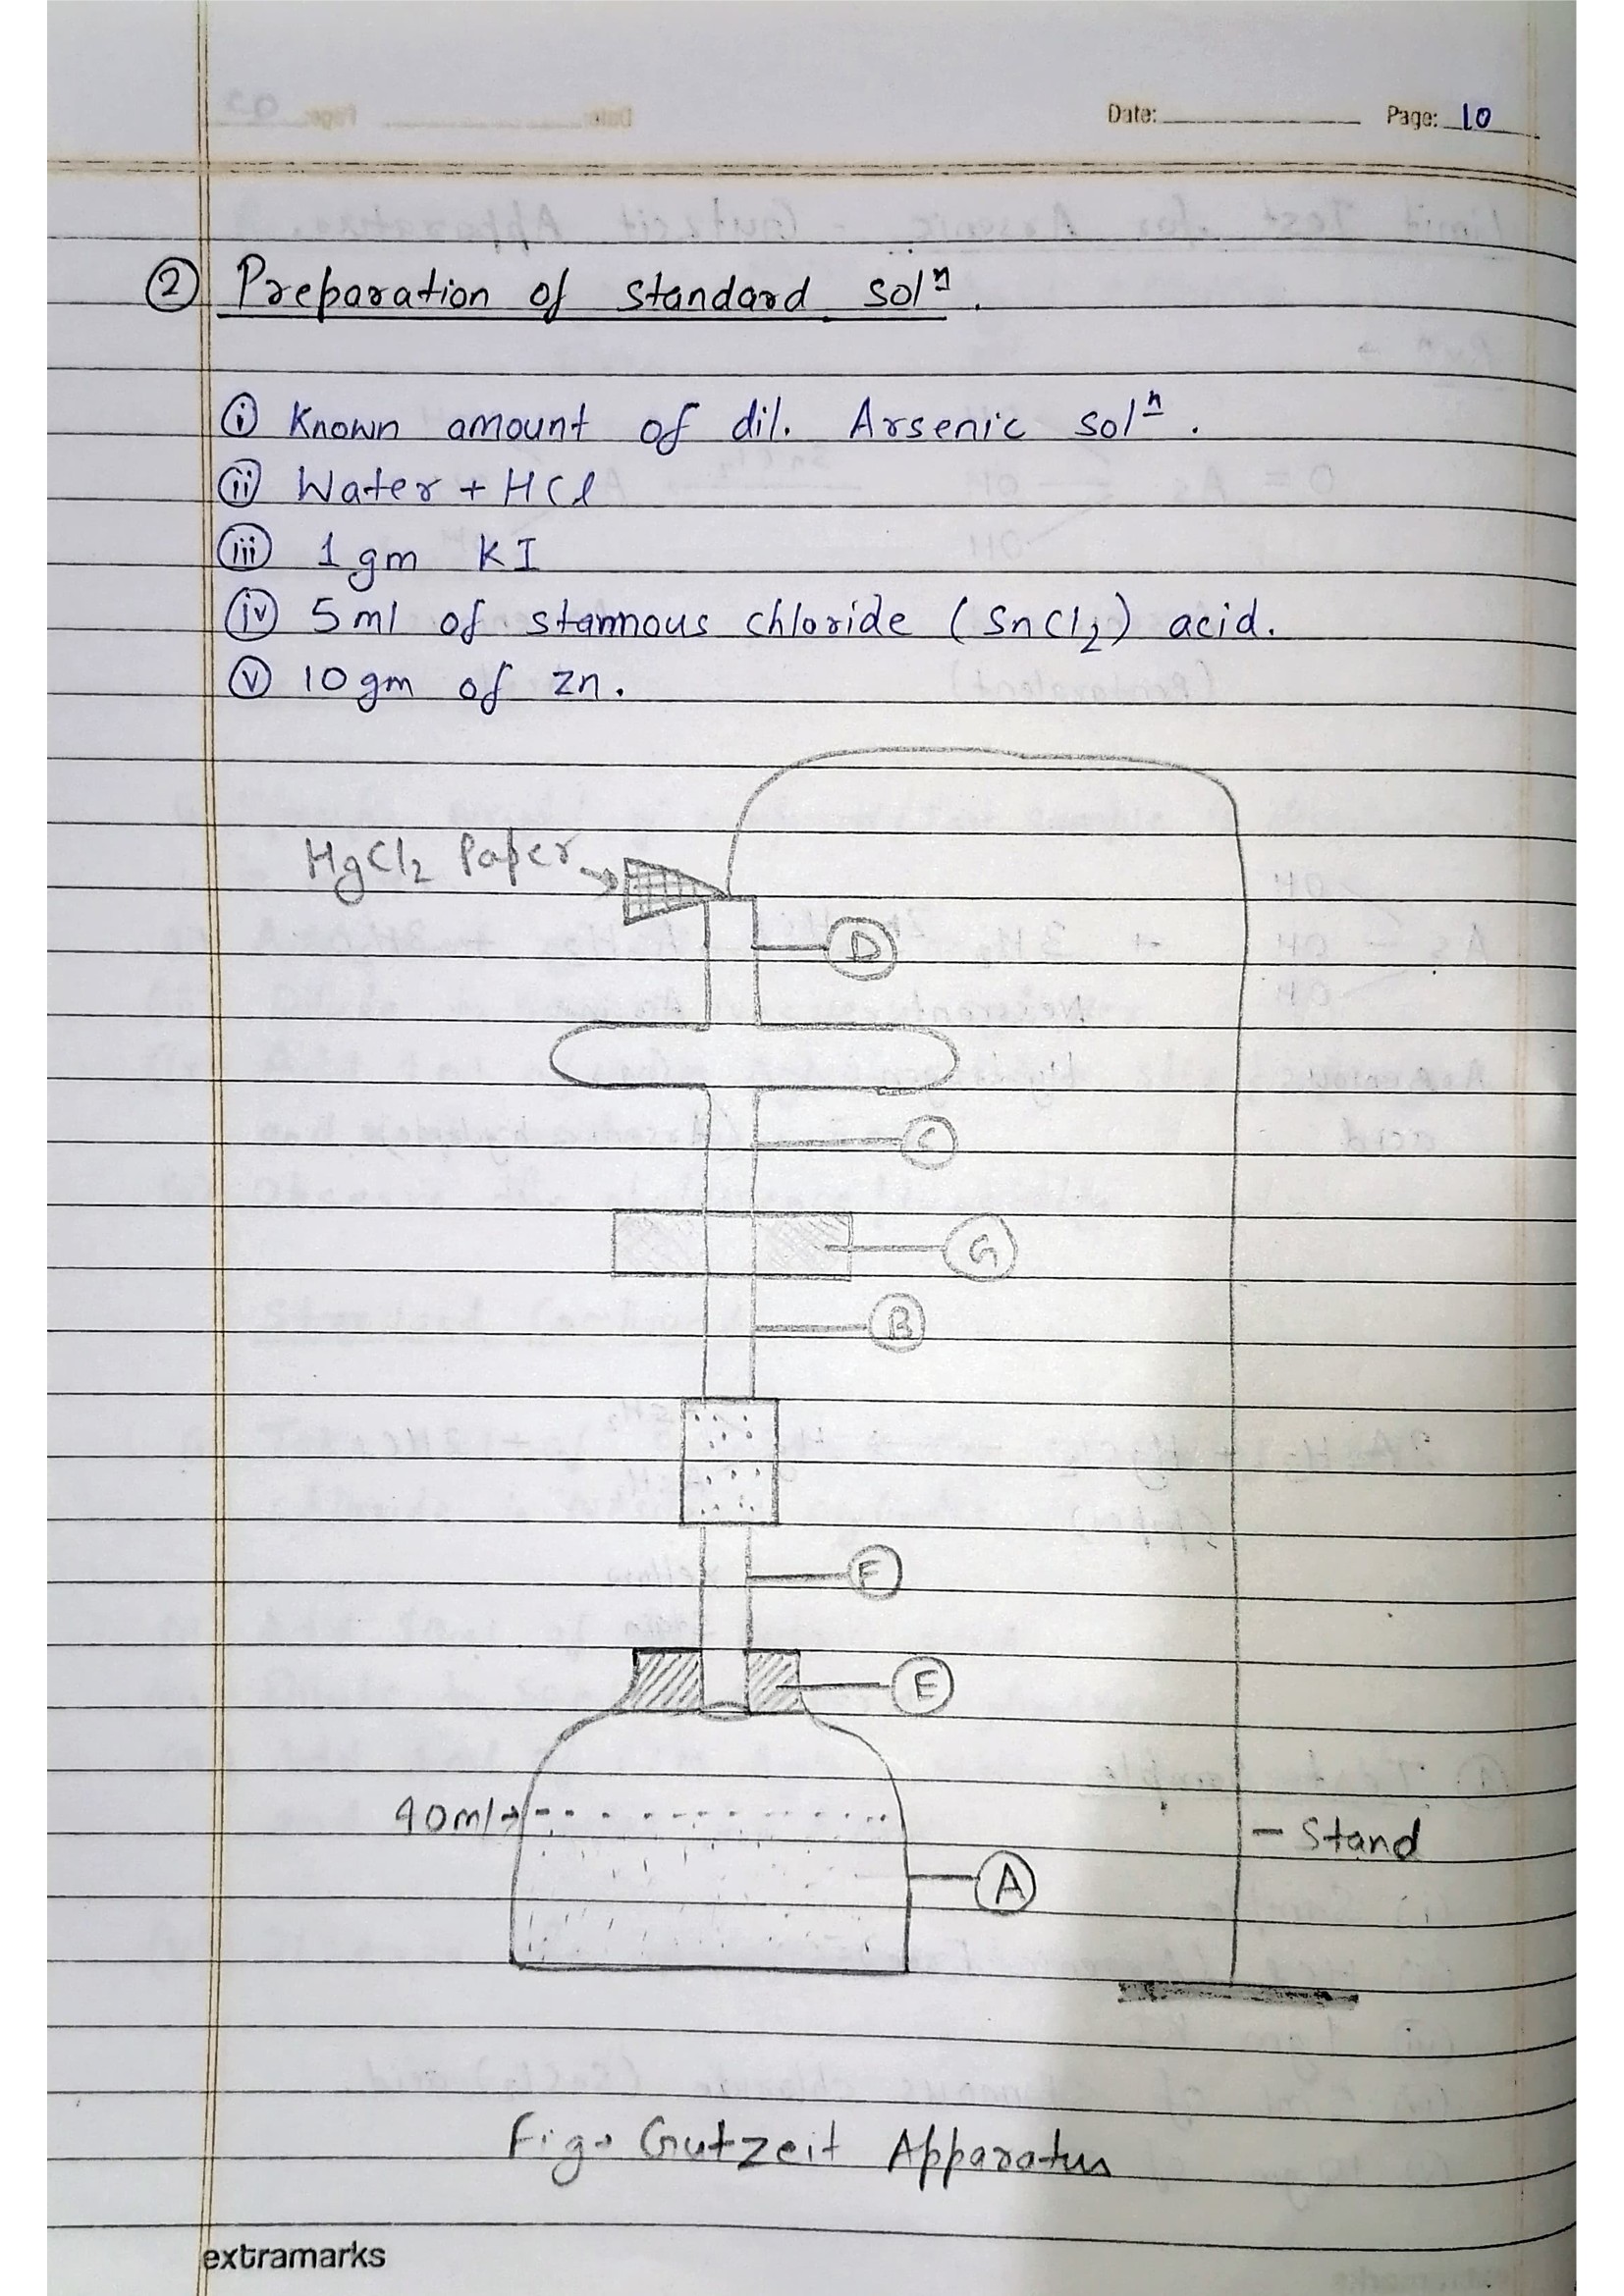 Date: Page: 10
② Preparation of standard solⁿ.
ⓘ Known amount of dil. Arsenic solⁿ.
(ii) Water + HCl
(iii) 1 gm KI
(iv) 5 ml of stannous chloride (SnCl₂) acid.
(v) 10 gm of Zn.
HgCl₂ Paper
D
C
G
B
F
E
40ml
A
- Stand
Fig → Gutzeit Apparatus
extramarks